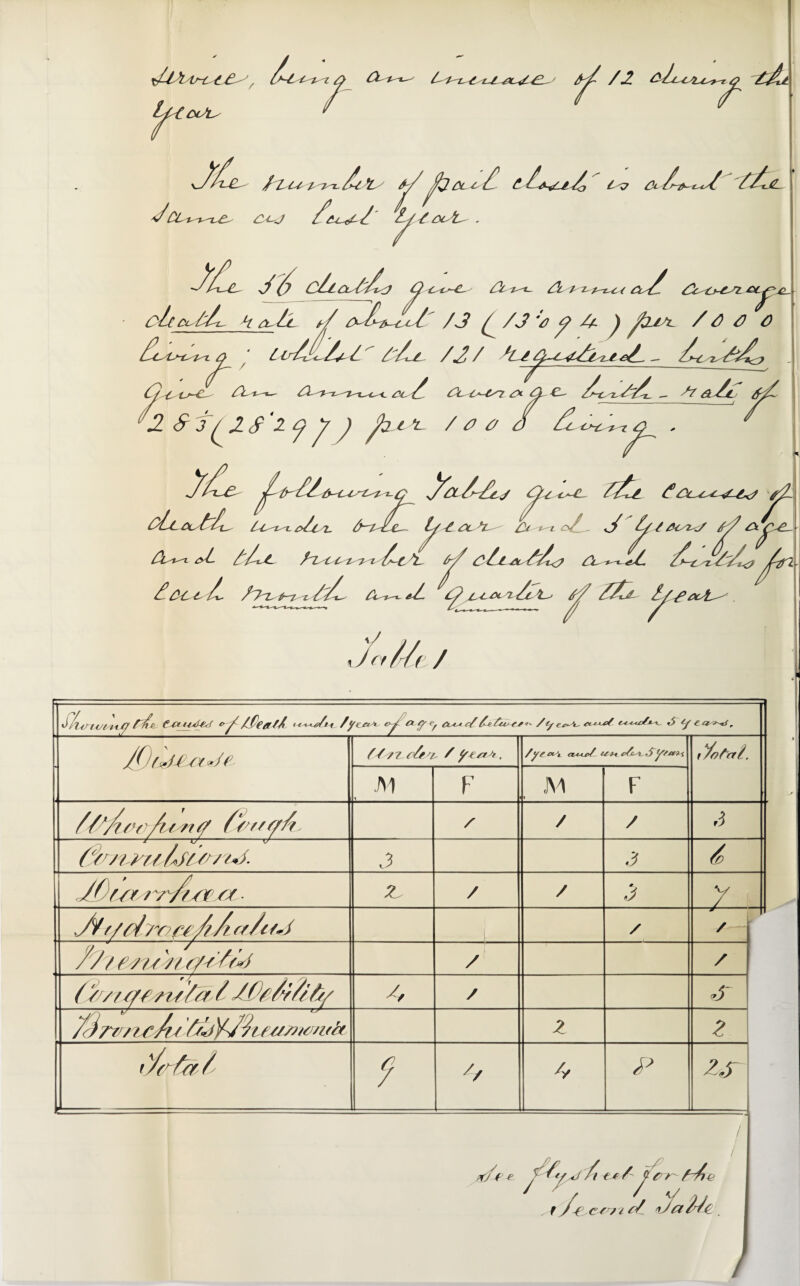 Service, being an increase of 12 during the
Year
The number of pail closets is about the
same as last Year.
The 56 deaths give an annual average
death rate of about 13 (13·094) per 1000
living; whilst the 121 registered-births
give an annual average birth-rate of
28 3 (28·297) per 1000 living.
The following Tables give the causes of
death under one Year and 5 Years of age
and the number of deaths and births for
each month and quarter of the Year.
Table 1
Showing the causes of Death under 1 year of age, and between 1 year and under 5 years.
Disease Under 1 year. 1 year and under 5 years Total.
M F M F
Whooping Cough 1 1 1 3
Convulsions. 3 3 6
Diarrhœa. 2 1 1 3 7
Hydrocephalus 1 1
Meningitis 1 1
Congenital Debility 4 1 5
Bronchitis & Pneumonia 2 2
Total 9 4 4 8 25
See flysheet for the
Second Table.